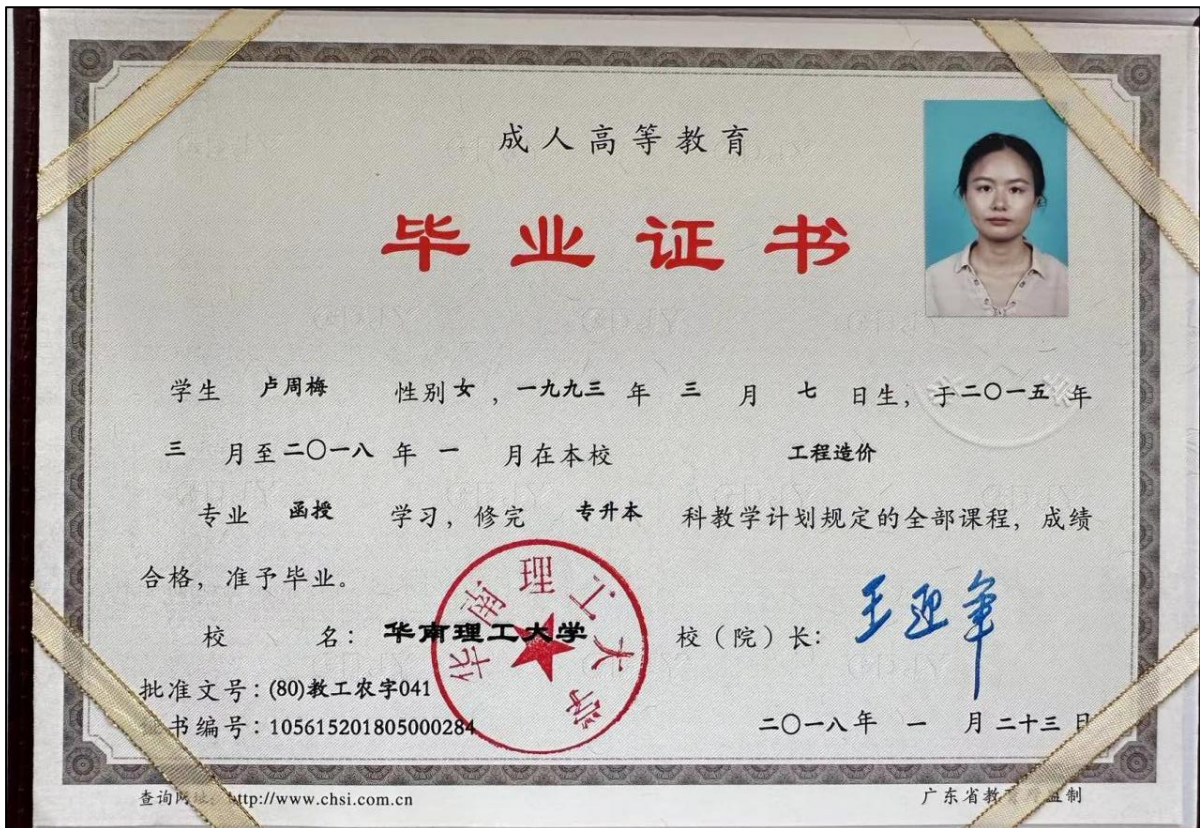 成人高等教育
毕业证书
学生 卢周梅 性别 女 ，一九九三 年 三 月 七 日生，于二〇一五 年
三 月至二〇一八 年 一 月在本校 工程造价
专业 函授 学习，修完 专升本 科教学计划规定的全部课程，成绩
合格，准予毕业。
校 名：华南理工大学 校（院）长：
华南理工大学
批准文号：(80)教工农字041
书编号：105615201805000284
二〇一八年 一 月 二十三 日
查询 ttp://www.chsi.com.cn
广东省教 监制